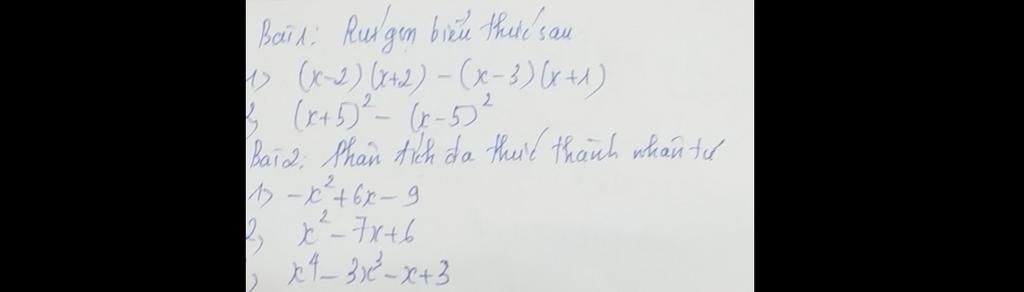 Bài 1: Rút gọn biểu thức sau
1) (x-2)(x+2) - (x-3)(x+1)
2, (x+5)² - (x-5)²
Bài 2: Phân tích đa thức thành nhân tử
1) -x² + 6x - 9
2, x² - 7x + 6
) x⁴ - 3x³ - x + 3